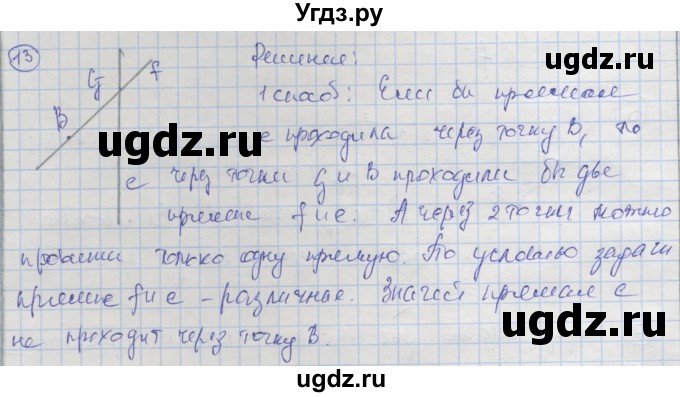 Угдз.ру
13 Решение:
G f
1 способ: Если бы прямая
B е проходила через точку B, то
e через точки G и B проходили бы две
прямые f и e. А через 2 точки можно
провести только одну прямую. По условию задачи
прямые f и e – различные. Значит прямая e
не проходит через точку B.
ugdz.ru
ugdz.ru
ugdz.ru
ugdz.ru
ugdz.ru
ugdz.ru
ugdz.ru
ugdz.ru
ugdz.ru